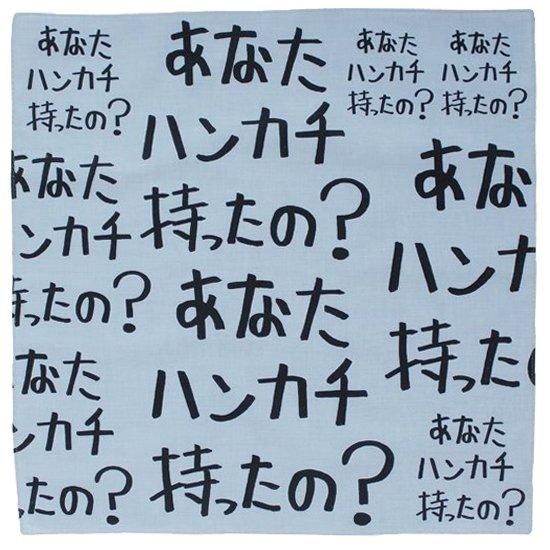 あなた
ハンカチ
持ったの？
あなた
ハンカチ
持ったの？
あなた
ハンカチ
持ったの？
あなた
ハンカチ
持ったの？
あなた
ンカチ
持ったの？
あな
ハンカチ
持った
あなた
ハンカチ
持ったの？
なた
ンカチ
持ったの？
あなた
ハンカチ
持ったの？